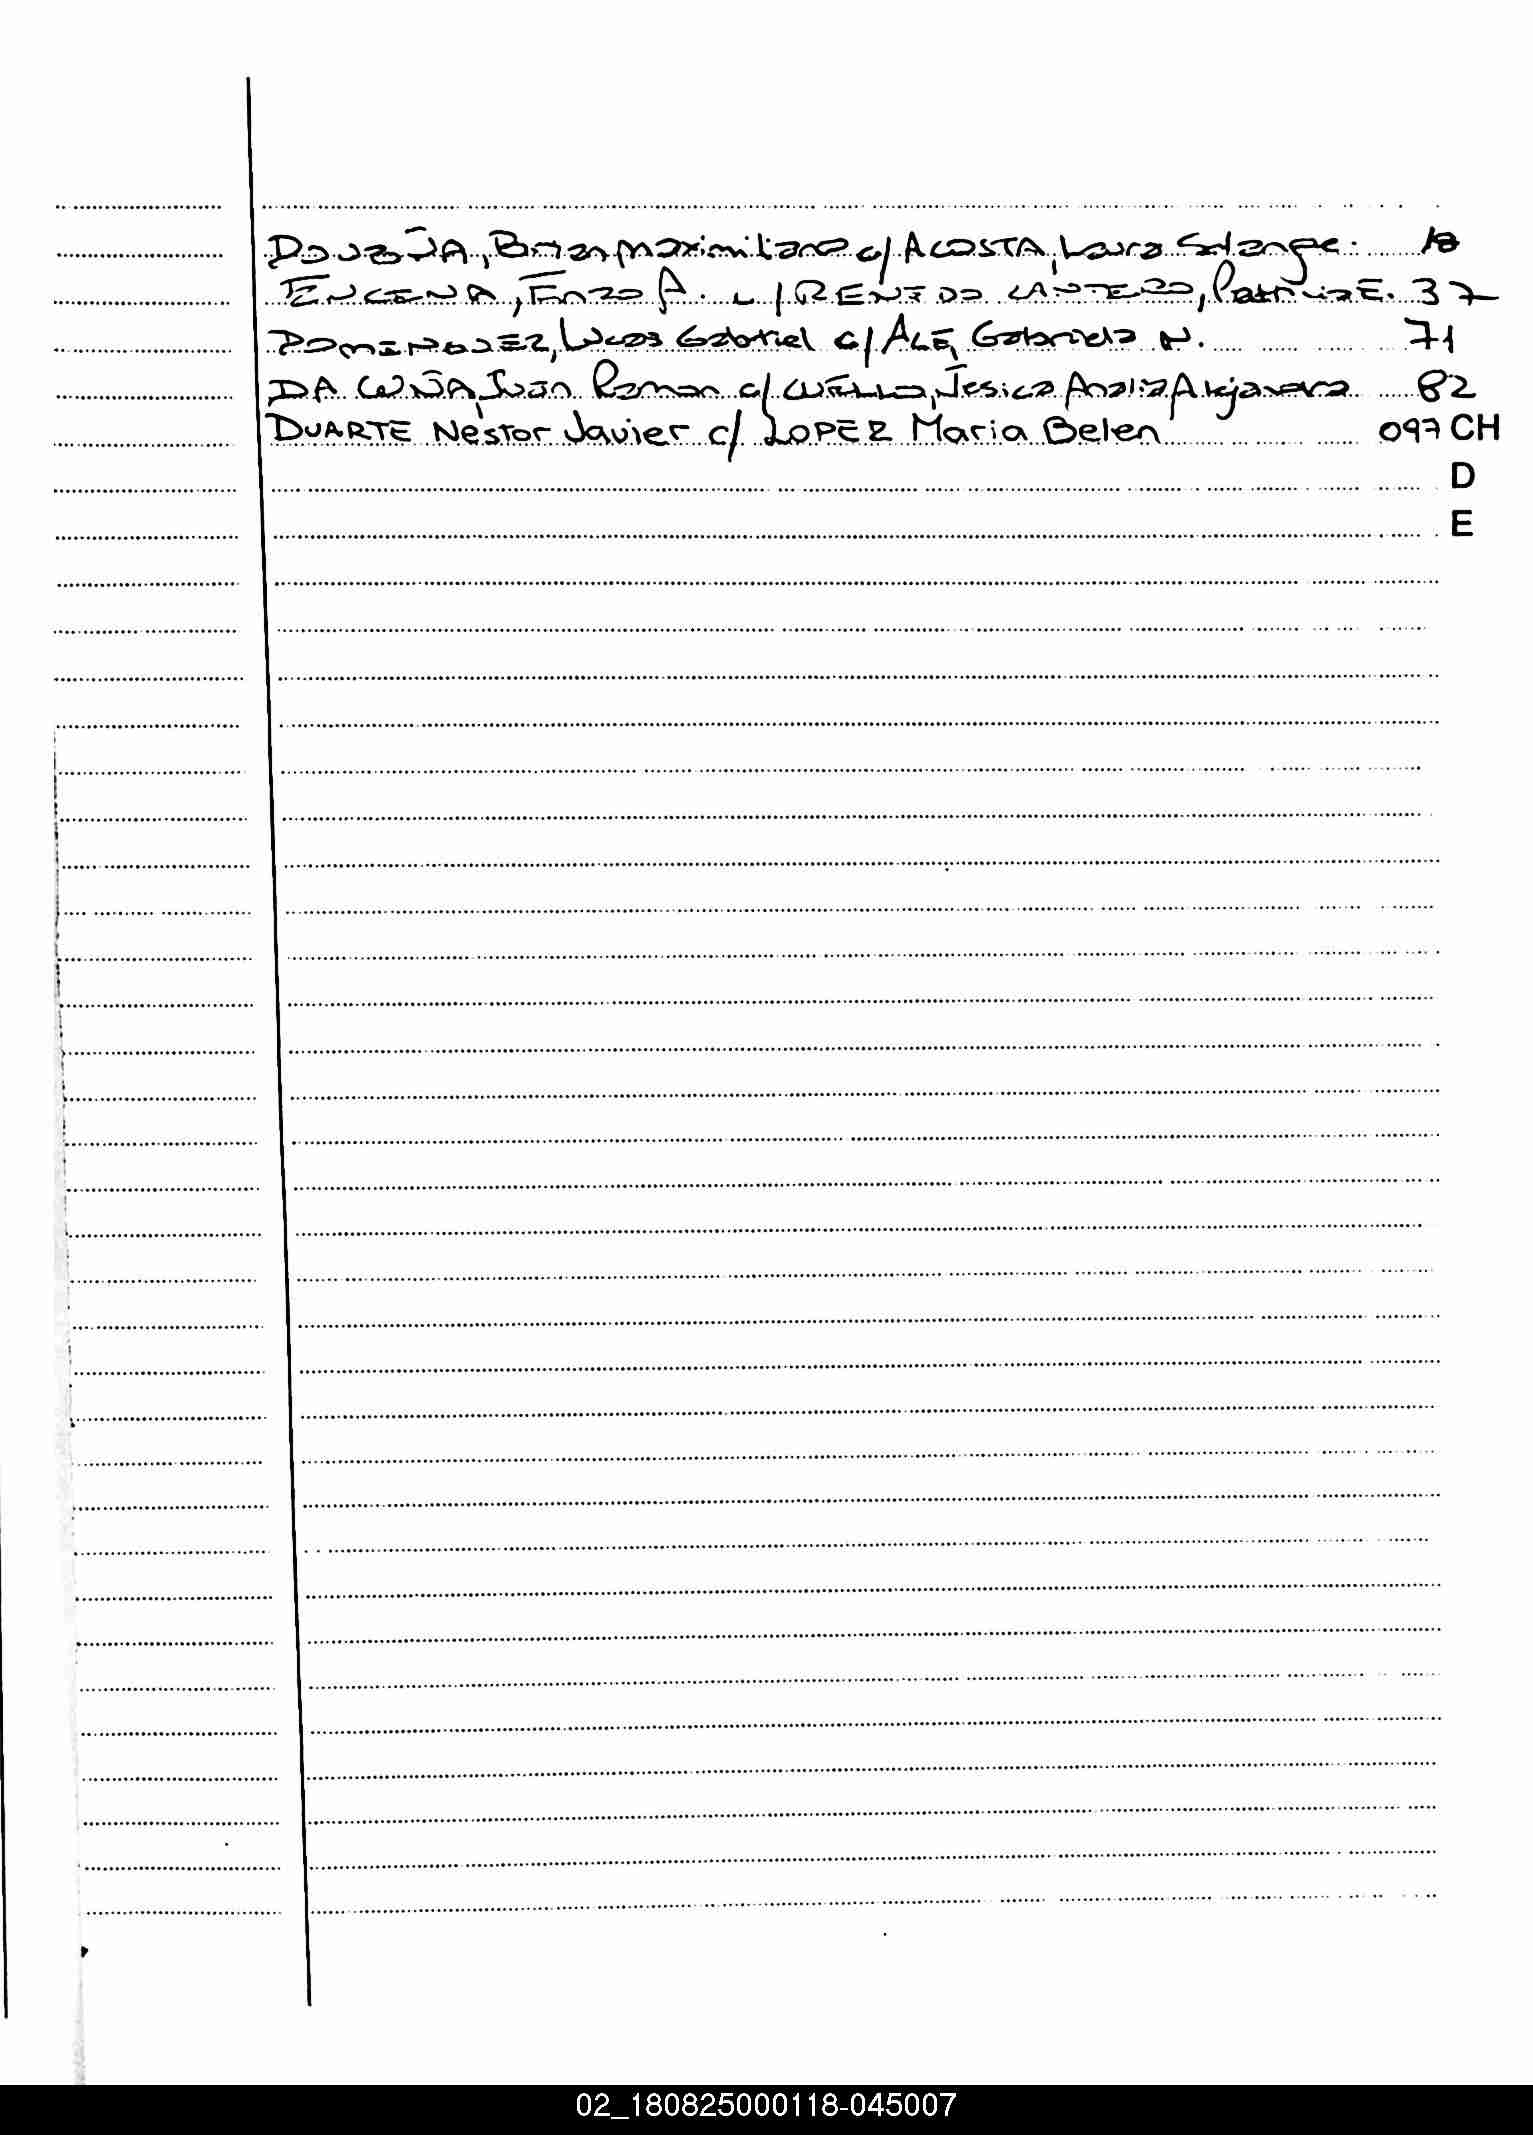 Brian Maximiliano c/ ACOSTA, Laura Solange. 10
ENCENA, Enzo A. c/ RENedo, Patricia E. 37
DOMINGUEZ, Lucas Gabriel c/ ALE, Gabriela N. 71
DA CUÑA, Juan Ramon c/ CUELLO, Jesica Analia 82
DUARTE Nestor Javier c/ LOPEZ Maria Belen 097 CH
D
E
02_180825000118-045007